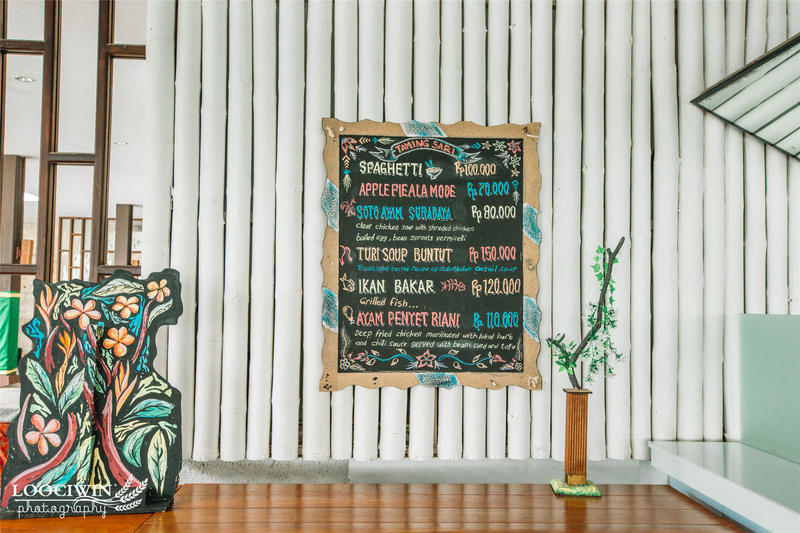 TAMING SARI
SPAGHETTI Rp 100.000
APPLE PIE ALA MODE Rp 70.000
SOTO AYAM SURABAYA Rp 80.000
clear chicken soup with shreded chicken
boiled egg, bean sprouts vermiceli
TURI SOUP BUNTUT Rp 150.000
Traditional secret recipe of Indonesian oxtail soup
IKAN BAKAR Rp 120.000
Grilled fish...
AYAM PENYET RIANI Rp 110.000
Deep fried chicken marinated with lokal herb
and chili sauce served with beans curd and tofu
LOOCIWIN
photography